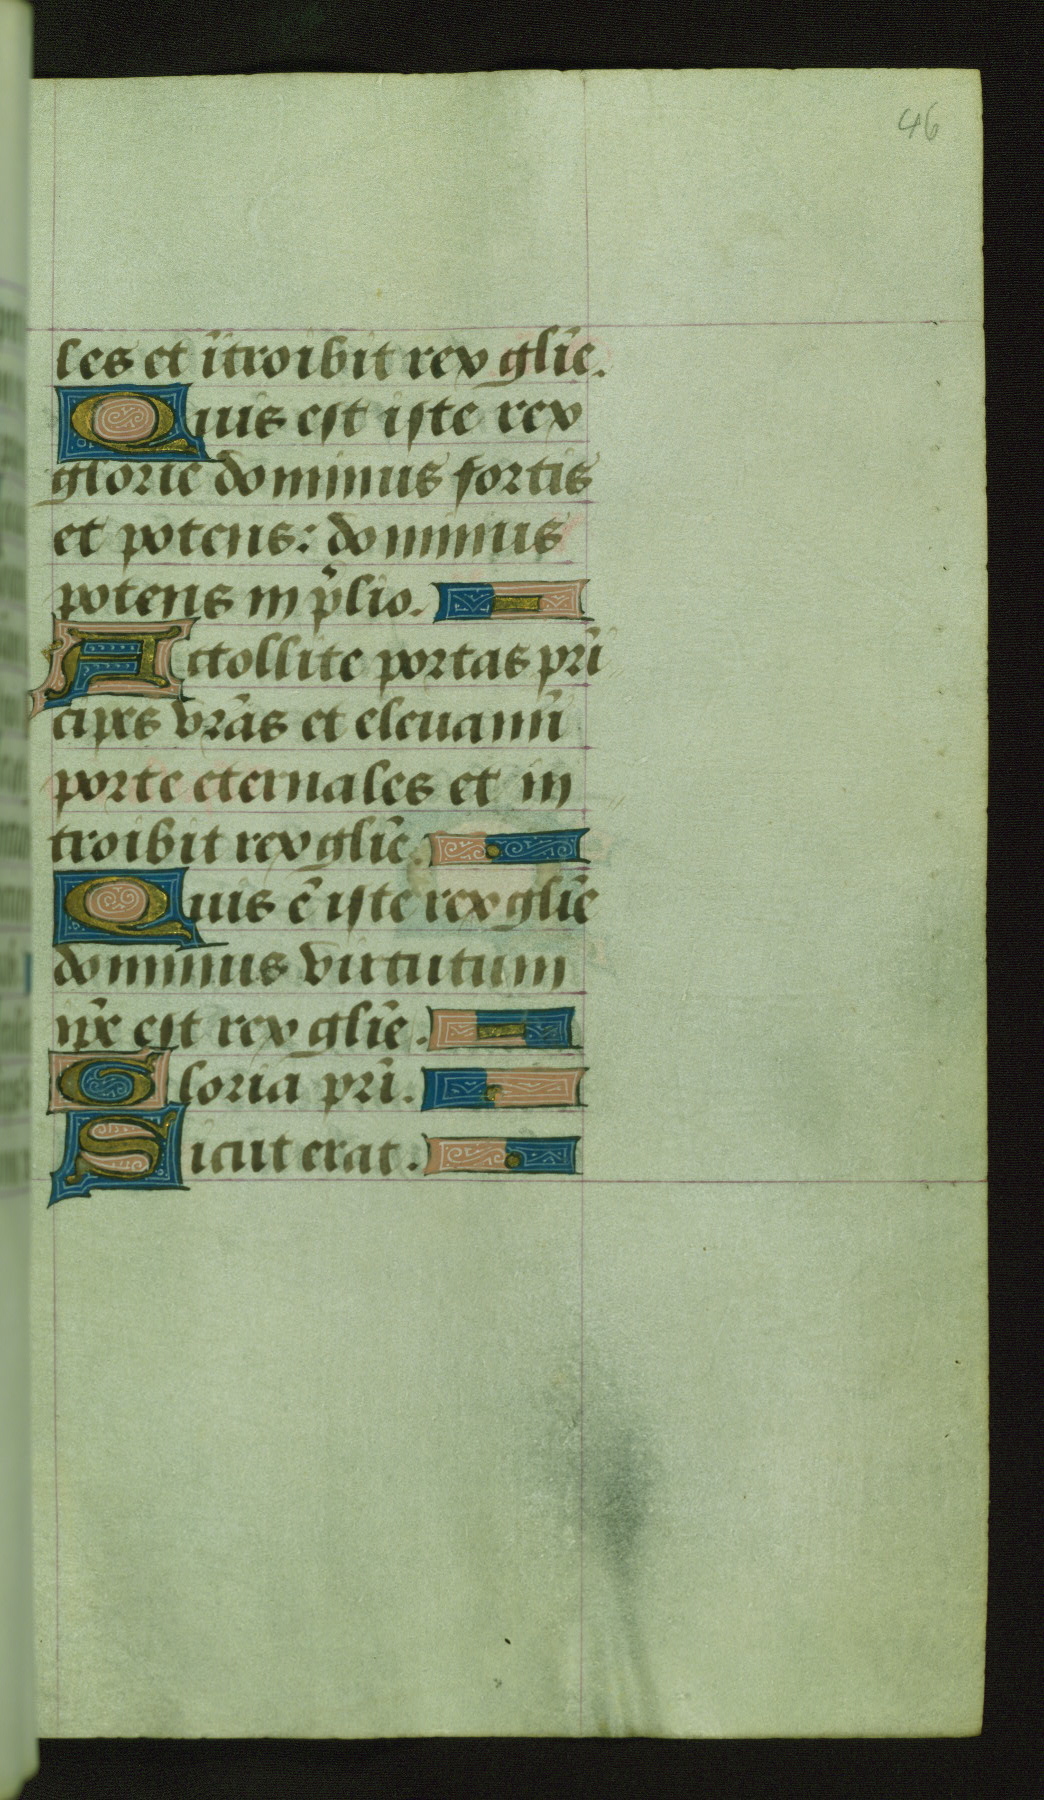 46
les et ĩtroibit rex glĩe.
Quis est iste rex
glorie dominus fortis
et potens: dominus
potens in p̃lio.
Attollite portas prĩ
cipes vrãs et eleuamĩ
porte eternales et in
troibit rex glĩe.
Quis ẽ iste rex glĩe
dominus virtutum
ip̃e est rex glĩe.
Gloria pr̃i.
Sicut erat.